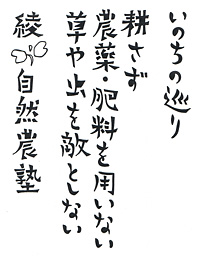 いのちの巡り
耕さず
農薬・肥料を用いない
草や虫を敵としない
綾自然農塾